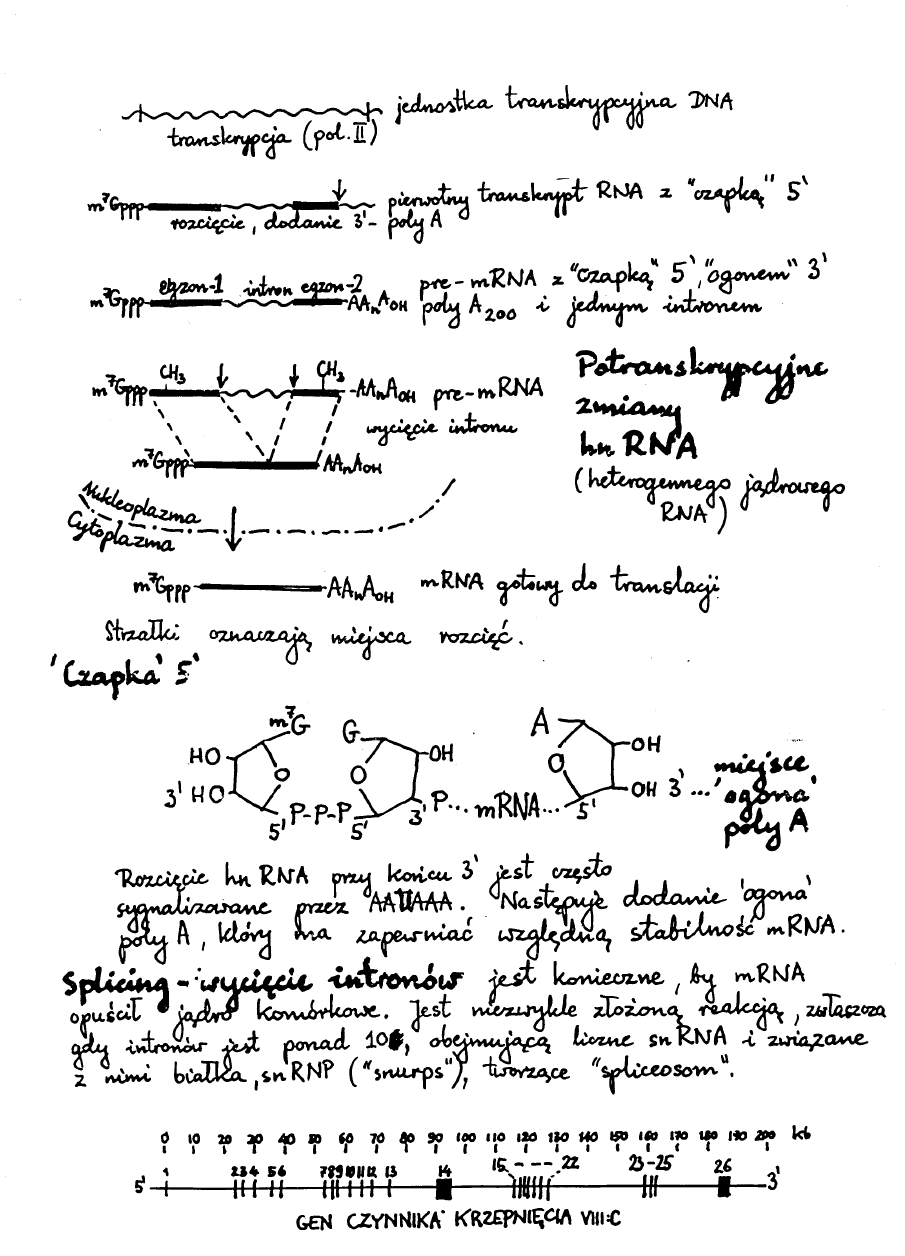 jednostka transkrypcyjna DNA
transkrypcja (pol. II)
m⁷Gppp
pierwotny transkrypt RNA z "czapką" 5'
rozcięcie, dodanie 3'- poly A
egzon-1 intron egzon-2
m⁷Gppp AAₙA OH
pre-mRNA z "czapką" 5', "ogonem" 3'
poly A₂₀₀ i jednym intronem
CH₃ CH₃
m⁷Gppp AAₙA OH pre-mRNA
wycięcie intronu
m⁷Gppp AAₙA OH
Potranskrypcyjne
zmiany
hn RNA
(heterogennego jądrowego
RNA)
Nukleoplazma
Cytoplazma
m⁷Gppp AAₙA OH mRNA gotowy do translacji
Strzałki oznaczają miejsca rozcięć.
'Czapka' 5'
m⁷G G A
HO OH OH
O O O
3' HO OH 3' ...
5' P-P-P 5' 3' P... mRNA... 5'
miejsce
'ogona'
poly A
Rozcięcie hn RNA przy końcu 3' jest często
sygnalizowane przez AAUAAA. Następuje dodanie 'ogona'
poly A, który ma zapewniać względną stabilność mRNA.
Splicing - wycięcie intronów jest konieczne, by mRNA
opuścił jądro komórkowe. Jest niezwykle złożoną reakcją, zwłaszcza
gdy intronów jest ponad 10, obejmującą liczne snRNA i związane
z nimi białka, snRNP ("snurps"), tworzące "spliceosom".
0 10 20 30 40 50 60 70 80 90 100 110 120 130 140 150 160 170 180 190 200 kb
1 2 3 4 5 6 7 8 9 10 11 12 13 14 15 --- 22 23-25 26
5' 3'
GEN CZYNNIKA KRZEPNIĘCIA VIII:C